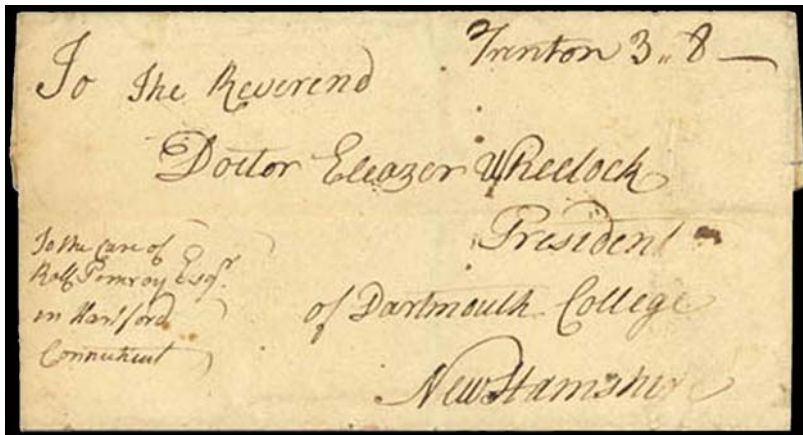 Trenton 3" 8 —
To The Reverend
Doctor Eleazer Wheelock
President
of Dartmouth College
New Hamshire
To the care of
Ralf Pomroy Esqr.
in Hartford
Connecticut